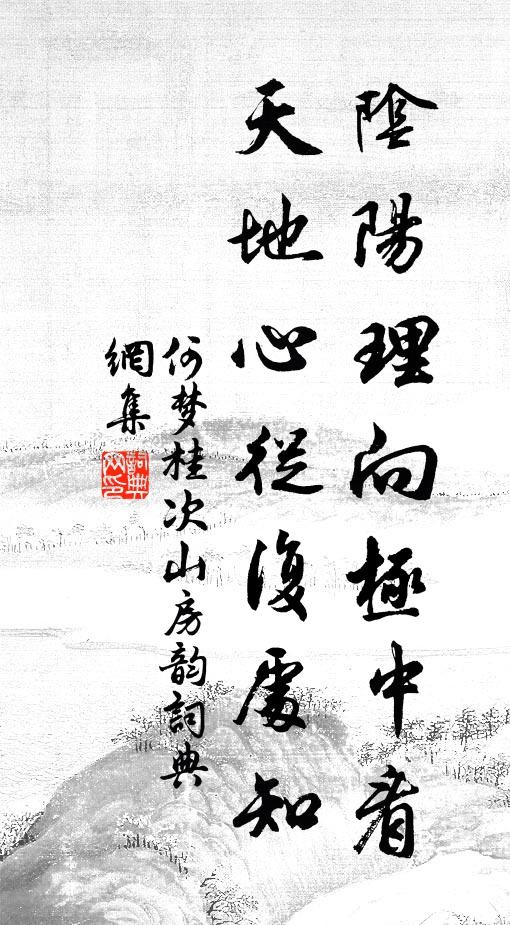 陰陽理向極中看
天地心從復處知
何梦桂次山房韵詞典
網集